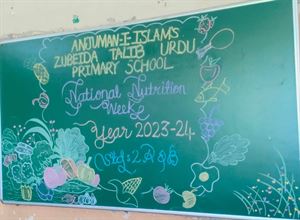 ANJUMAN-I-ISLAM'S
ZUBEIDA TALIB URDU
PRIMARY SCHOOL
National Nutrition
Week
Year 2023-24
Std: 2 A & B